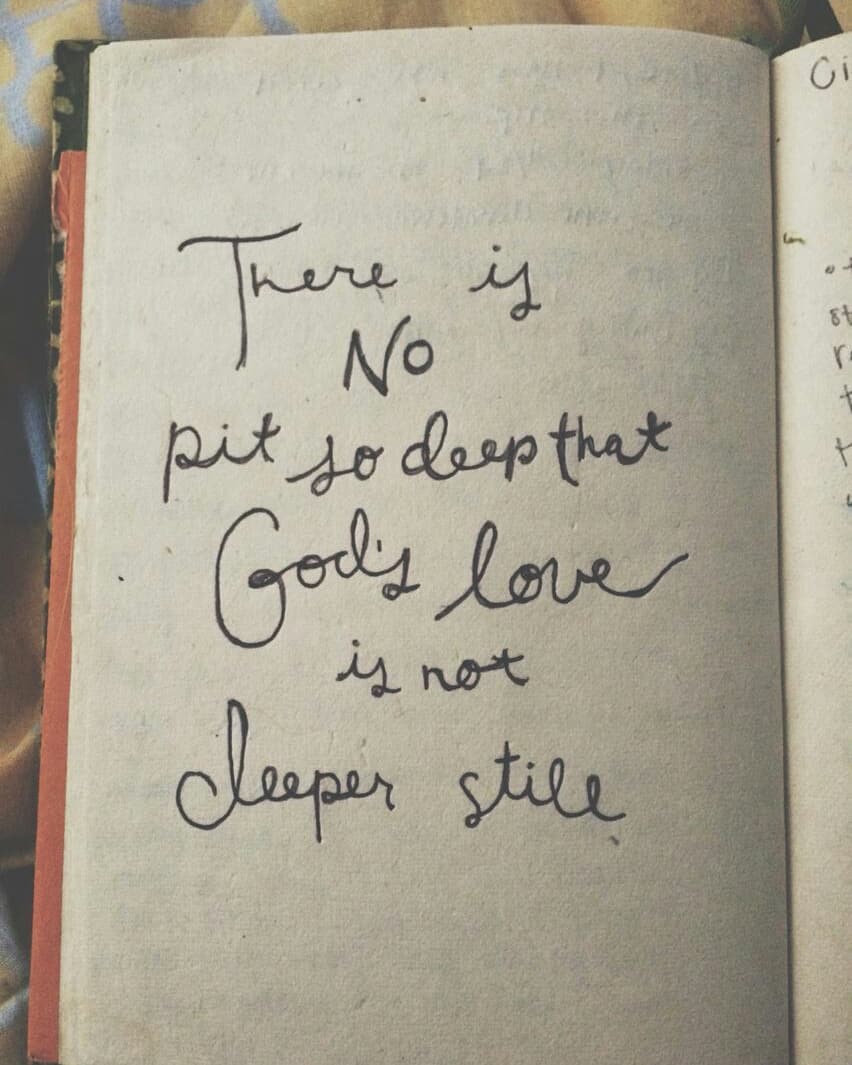 There is
NO
pit so deep that
God's love
is not
deeper still
Ci